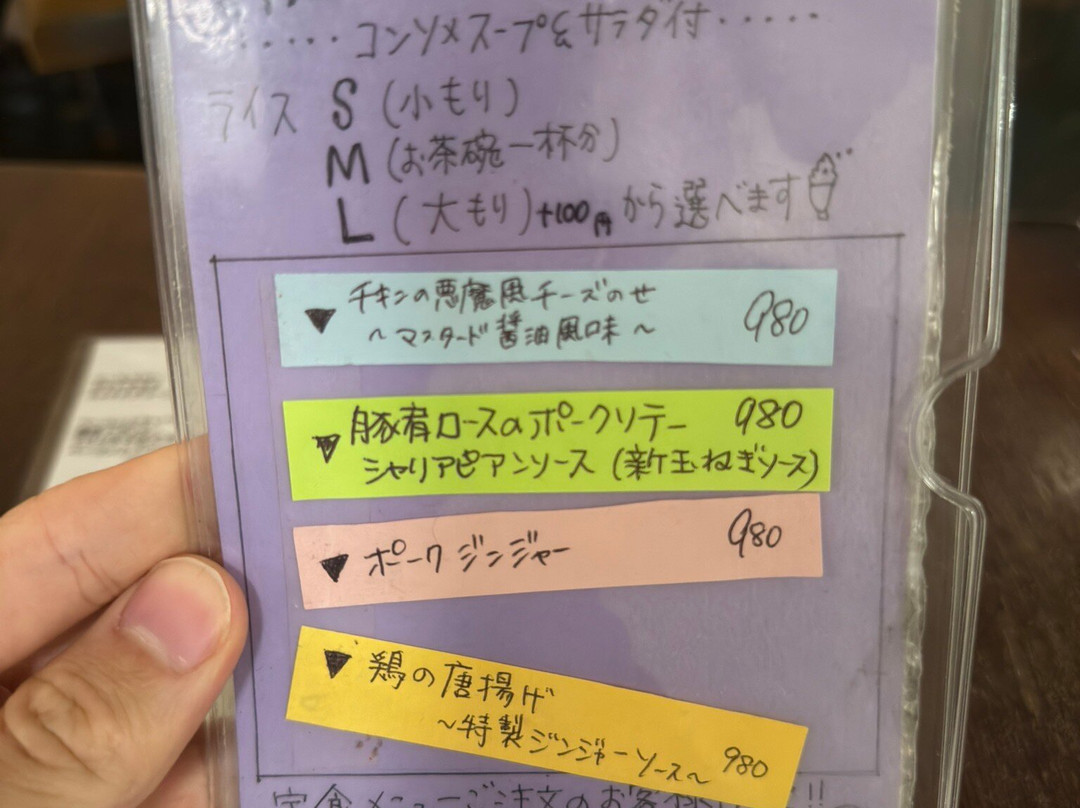 ・・・・・コンソメスープ&サラダ付・・・・・
ライス S (小もり)
M (お茶碗一杯分)
L (大もり)+100円から選べます
▼ チキンの悪魔風チーズのせ 980
～マスタード醤油風味～
▼ 豚肩ロースのポークソテー 980
シャリアピアンソース (新玉ねぎソース)
▼ ポークジンジャー 980
▼ 鶏の唐揚げ
～特製ジンジャーソース～ 980
定食メニューご注文のお客様